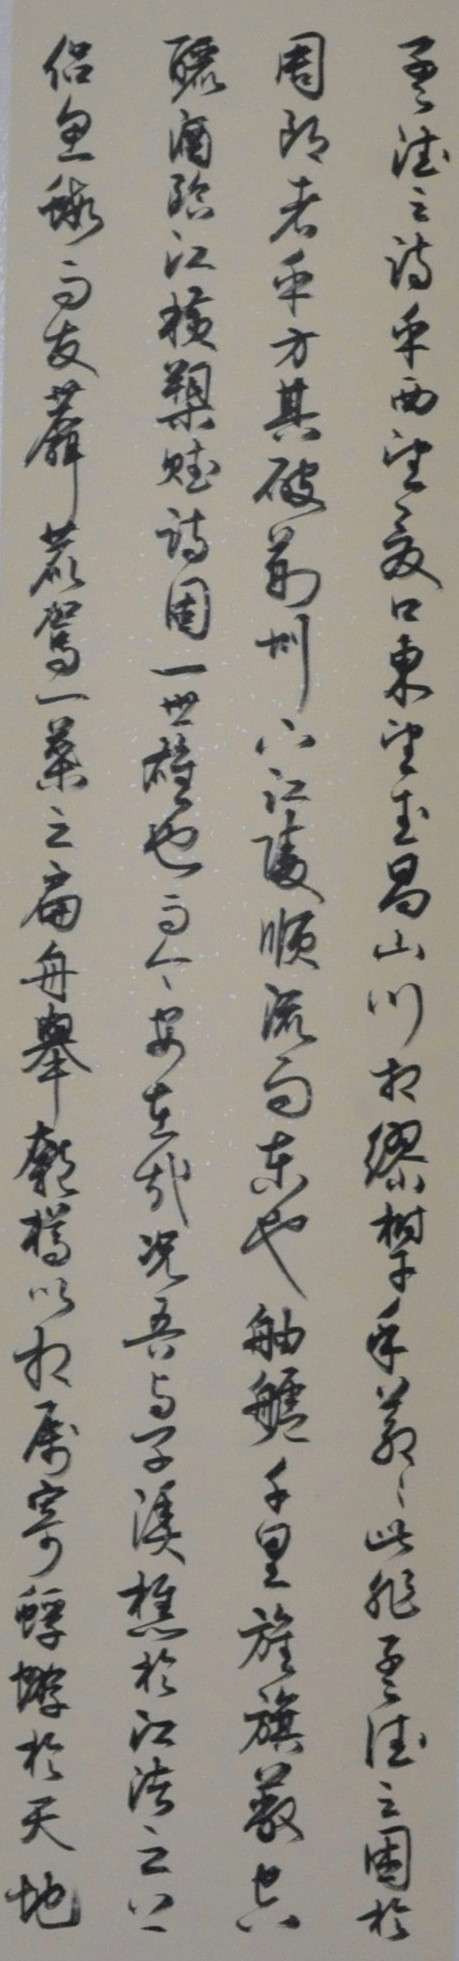 孟德之詩乎西望夏口東望武昌山川相繆鬱乎蒼〻此非孟德之困於
周郎者乎方其破荊州下江陵順流而東也舳艫千里旌旗蔽空
釃酒臨江橫槊賦詩固一世雄也而今安在哉況吾與子漁樵於江渚之上
侶魚蝦而友麋鹿駕一葉之扁舟舉匏樽以相屬寄蜉蝣於天地